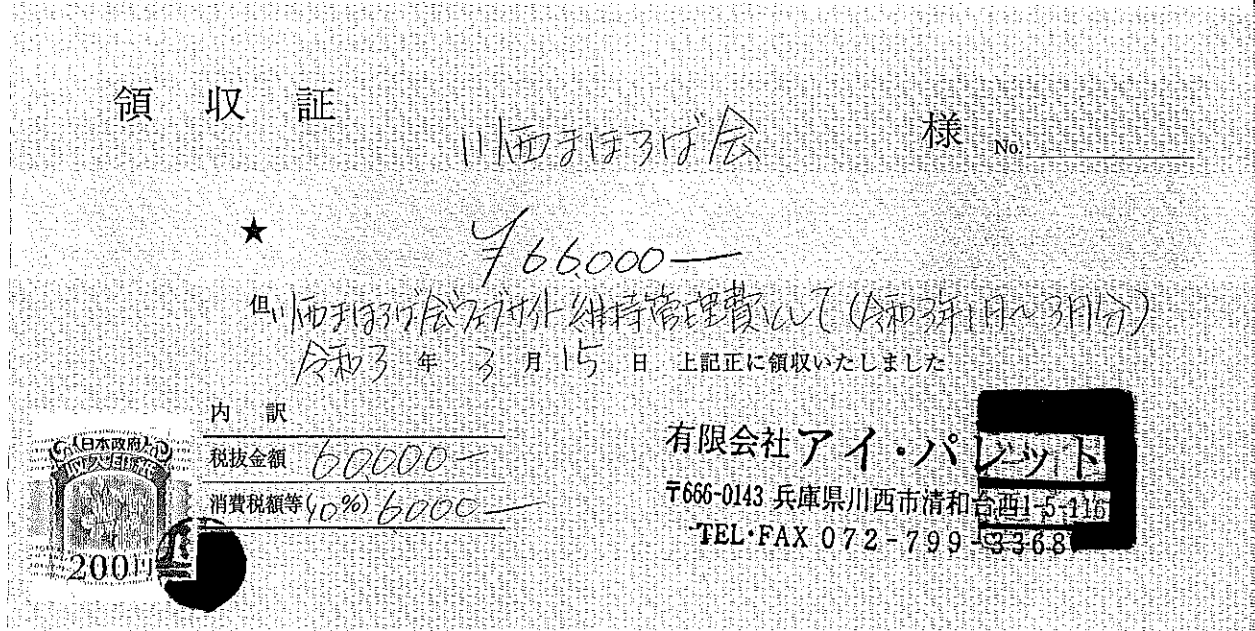 領収証
川西まほろば会 様 No.
★ ¥66,000ー
但 川西まほろば会ウェブサイト維持管理費として(令和3年1月〜3月分)
令和3年3月15日 上記正に領収いたしました
内訳
税抜金額 60,000ー
消費税額等(10%) 6,000ー
日本政府
収入印紙
200円
有限会社アイ・パレット
〒666-0143 兵庫県川西市清和台西1-5-116
TEL・FAX 072-799-3368